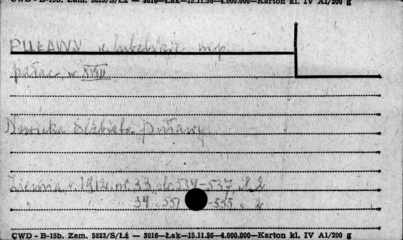 CWD - B-15b. Zam. 5823/S/Łż — 2016—Łak—15.11.56—4.000.000—Karton kl. IV A1/200 g
PUŁAWY w. lubelskie
pałac, w. XVIII
Nowicka Elżbieta Puławy
Ziemia r. 1912. nr 33, s. 534-537, il. 2
34, 551-553, il. 2
CWD - B-15b. Zam. 5823/S/Łż — 2016—Łak—15.11.56—4.000.000—Karton kl. IV A1/200 g